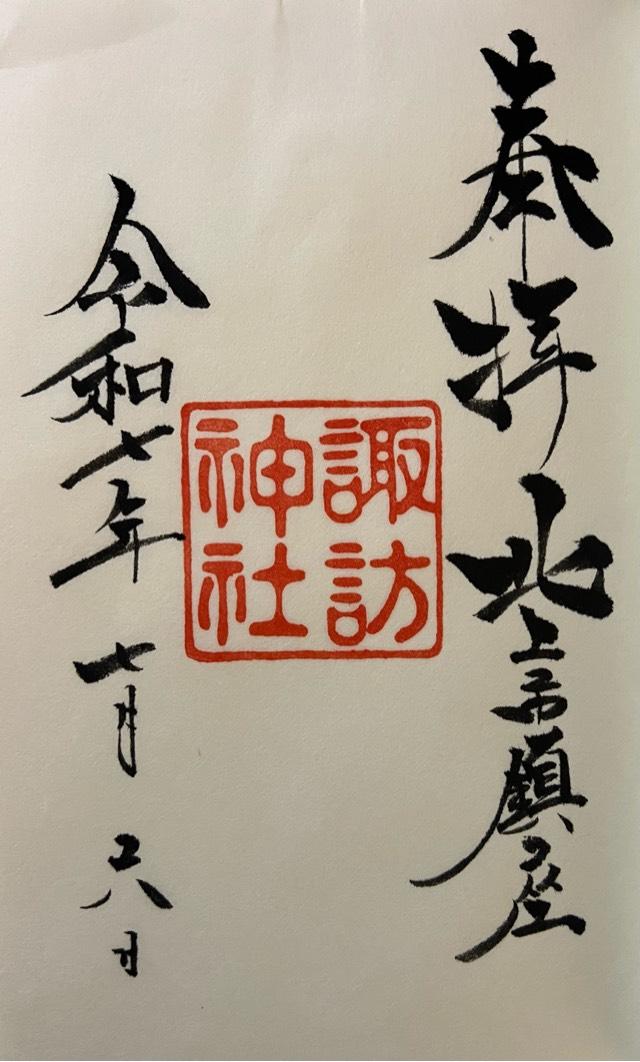 奉拝 北上市鎮座
諏訪
神社
令和七年 七月 二六日